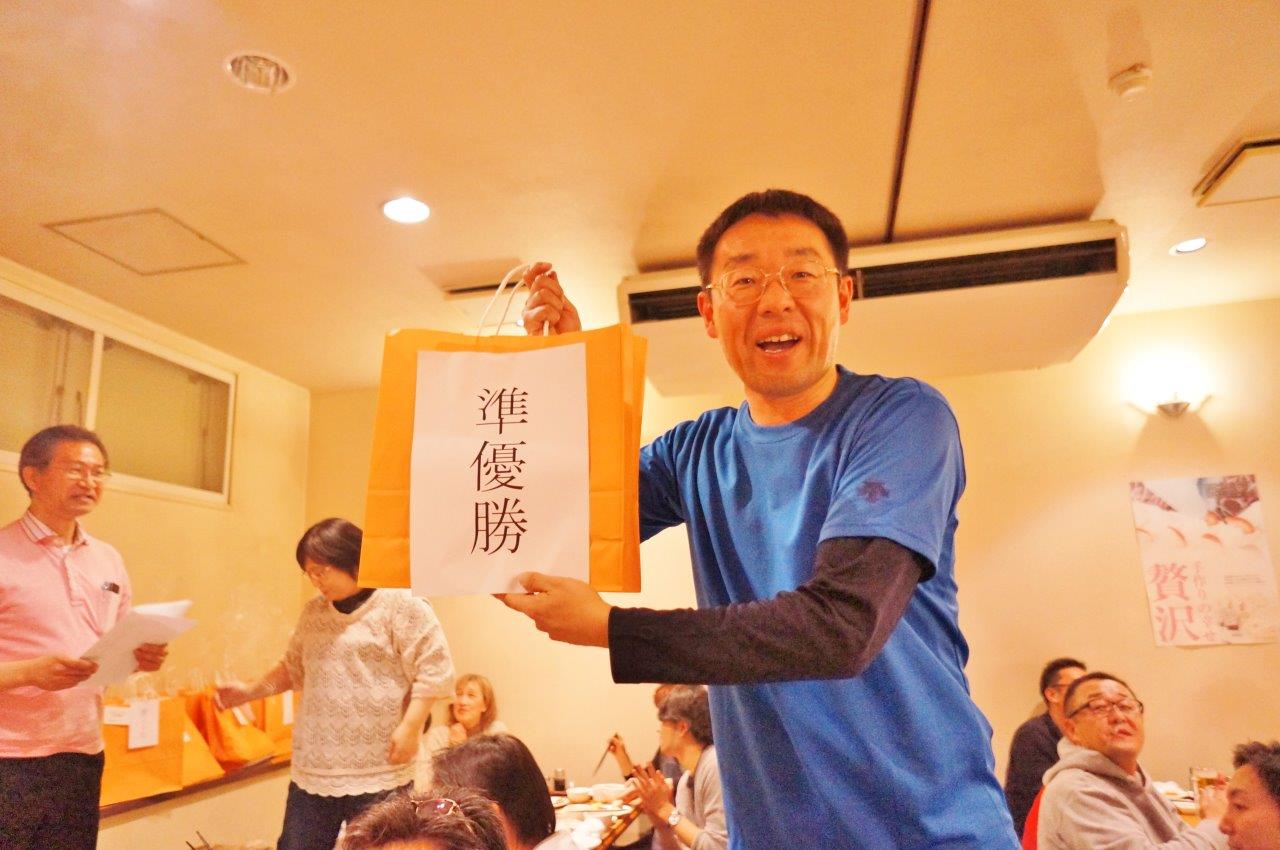 準優勝
手作りの幸せ
贅沢